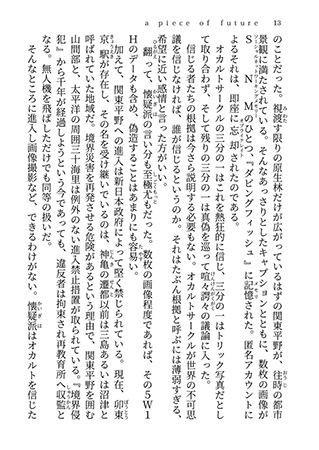 a piece of future
13
のことだった。視渡す限りの原生林だけが広がっているはずの関東平野が、往時の都市
景観に満たされている。そんなあっさりとしたキャプションとともに、数枚の画像が
S・N・Mのひとつ『ダビングフィッシュ』に記憶された。匿名アカウントに
よるそれは、即座に忘却されたのである。
オカルトサークルの三分の一はこれを熱狂的に信じ、三分の一はトリック写真だとし
て取り合わず、そして残りの三分の一は真偽を巡って喧々諤々の議論に入った。
信じる者たちの根拠は今さら説明する必要もない。オカルトサークルが世界の不可思
議を信じなければ、誰が信じるというのか。それはたぶん根拠と呼ぶには薄弱すぎる、
希望に近い感情と言った方がいい。
翻って、懐疑派の言い分も至極尤もだった。数枚の画像程度であれば、その5W1
Hのデータも含め、偽造することはあまりにも容易い。
加えて、関東平野への進入は新日本政府によって堅く禁じられている。現在、卯東
京駅が存在し、その名を受け継いでいるのは、神亀の遷都以前は三島あるいは沼津と
呼ばれていた地域だ。境界災害を再発させる危険があるという理由で、関東平野を囲む
山間部と、太平洋の周囲三十海里は例外のない進入禁止措置が取られている。『境界侵
犯』から千年が経過しようという今であっても、違反者は拘束され再教育所へ収監と
なる。無人機を飛ばしただけでも同等の扱いだ。
そんなところに進入し画像撮影など、できるわけがない。懐疑派はオカルトを信じた